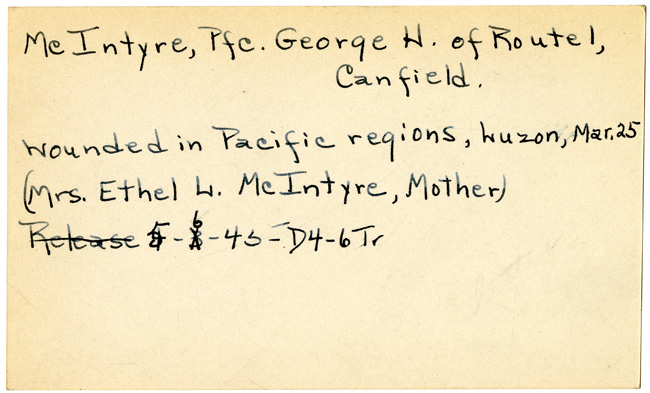 McIntyre, Pfc. George H. of Route 1,
Canfield.
wounded in Pacific regions, Luzon, Mar. 25
(Mrs. Ethel L. McIntyre, Mother)
Release 5-6-45-D4-6Tr